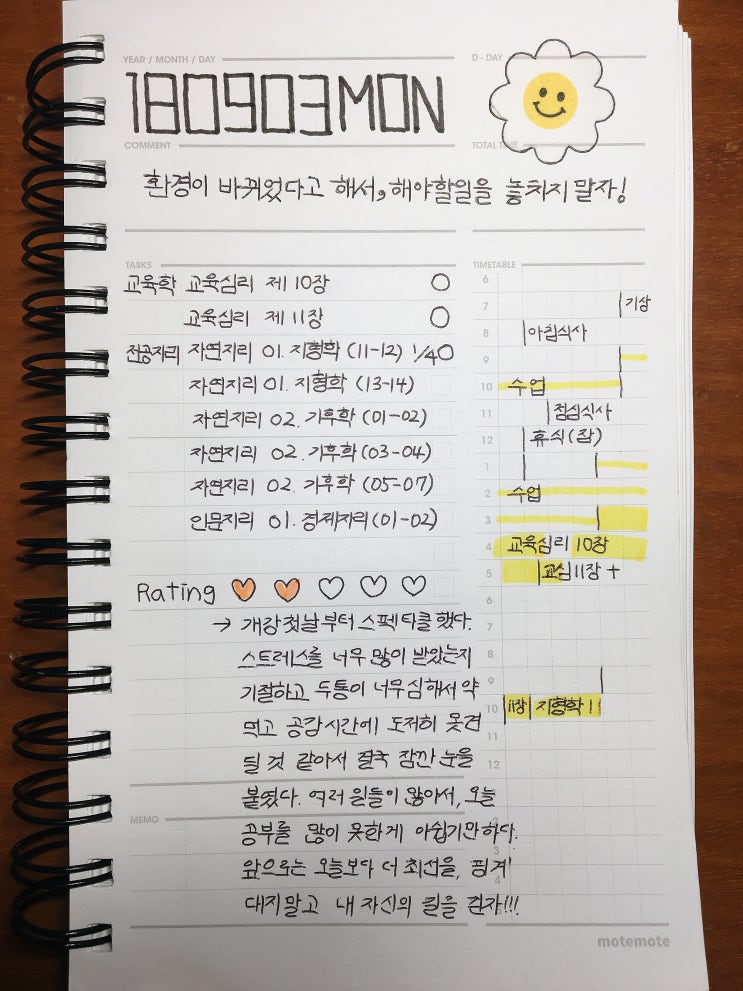 YEAR / MONTH / DAY
D - DAY
180903MON
COMMENT
TOTAL TIME
환경이 바뀌었다고 해서, 해야할일을 놓치지 말자!
TASKS
교육학 교육심리 제 10장 O
교육심리 제 11장 O
전공지리 자연지리 01. 지형학 (11-12) 1/4 O
자연지리 01. 지형학 (13-14)
자연지리 02. 기후학 (01-02)
자연지리 02. 기후학 (03-04)
자연지리 02. 기후학 (05-07)
인문지리 01. 경제지리 (01-02)
Rating
→ 개강 첫날부터 스펙타클했다.
스트레스를 너무 많이 받았는지
기절하고 두통이 너무 심해서 약
먹고 공강시간에 도저히 못견
딜 것 같아서 결국 잠깐 눈을
붙였다. 여러 일들이 많아서, 오늘
공부를 많이 못한게 아쉽기만하다.
앞으로는 오늘보다 더 최선을, 핑계
대지말고 내 자신의 길을 걷자!!!
MEMO
TIMETABLE
6
7 기상
8 아침식사
9
10 수업
11 점심식사
12 휴식(잠)
1
2 수업
3
4 교육심리 10장
5 교심11장 +
6
7
8
9
10 11장 지형학 11
11
12
2
3
4
5
motemote